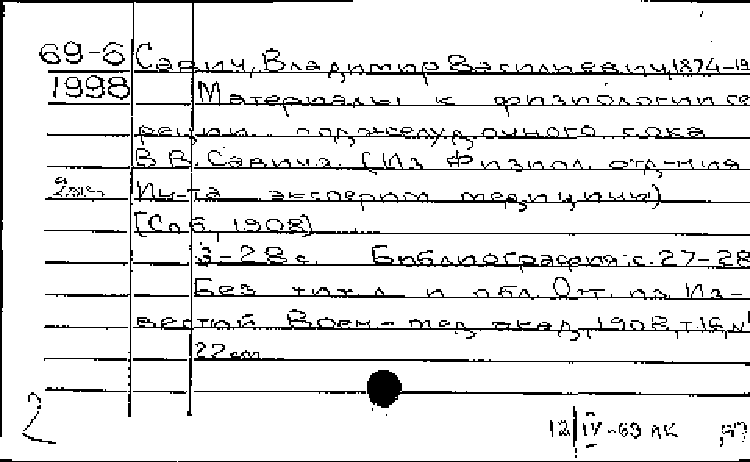 69-6 Савич, Владимир Васильевич, 1874-19
1998 Материалы к физиологии се
реции поджелудочного сока
В. В. Савича. (Из Физиол. отд-ния
2экз. Ин-та эксперим. медицины)
[Спб, 1908]
3-28 с. Библиография: с. 27-28
Без тит. л. и обл. Отт. из Из-
вестий Воен-мед. акад., 1908, т. 16, №
22 см
2
12/IV-69 АК